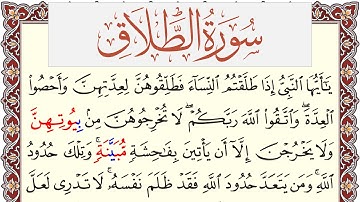 سُورَةُ الطَّلَاقِ
يَٰٓأَيُّهَا النَّبِيُّ إِذَا طَلَّقْتُمُ النِّسَآءَ فَطَلِّقُوهُنَّ لِعِدَّتِهِنَّ وَأَحْصُوا۟
الْعِدَّةَ ۖ وَاتَّقُوا۟ اللَّهَ رَبَّكُمْ ۖ لَا تُخْرِجُوهُنَّ مِنۢ بُيُوتِهِنَّ
وَلَا يَخْرُجْنَ إِلَّآ أَن يَأْتِينَ بِفَٰحِشَةٍ مُّبَيِّنَةٍ ۚ وَتِلْكَ حُدُودُ
اللَّهِ ۚ وَمَن يَتَعَدَّ حُدُودَ اللَّهِ فَقَدْ ظَلَمَ نَفْسَهُۥ ۚ لَا تَدْرِى لَعَلَّ